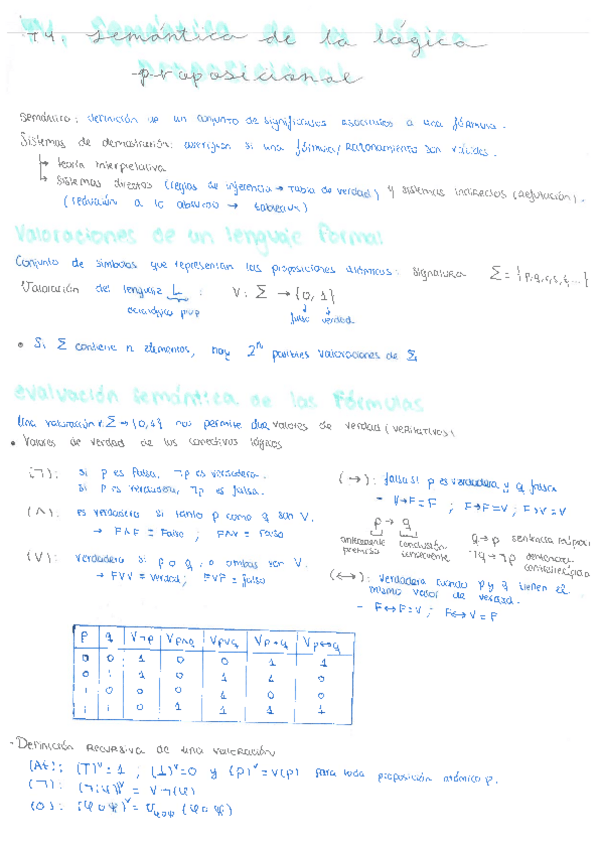 T4. Semántica de la lógica
proposicional
Semántica: definición de un conjunto de significados asociados a una fórmula.
Sistemas de demostración: averiguan si una fórmula/razonamiento son válidos.
↳ teoría interpretativa
↳ sistemas directos (reglas de inferencia → tabla de verdad) y sistemas indirectos (refutación).
(reducción a lo absurdo →
Valoraciones de un lenguaje formal
Conjunto de símbolos que representan las proposiciones atómicas: signatura Σ = {p,q,r,s,t,...}
Valoración del lenguaje L : V: Σ → {0,1}
falso verdad
• Si Σ contiene n elementos, hay 2ⁿ posibles valoraciones de Σ
evaluación semántica de las fórmulas
Una valoración v: Σ → {0,1} nos permite dar valores de verdad (veritativos)
• Valores de verdad de los conectivos lógicos
(¬): si p es falsa, ¬p es verdadera.
si p es verdadera, ¬p es falsa.
(∧): es verdadero si tanto p como q son V.
→ F∧F = Falso ; F∧V = Falso
(∨): verdadera si p o q, o ambas son V.
→ F∨V = verdad ; F∨F = falso
(→): falsa si p es verdadera y q falsa
- V→F = F ; F→F = V ; F→V = V
p → q
antecedente conclusión
premisa consecuente
q→p sentencia recíproca
¬q→¬p sentencia
contrarrecíproca
(↔): verdadera cuando p y q tienen el
mismo valor de verdad.
- F↔F = V ; F↔V = F
p q V¬p Vp∧q Vp∨q Vp→q Vp↔q
0 0 1 0 0 1 1
0 1 1 0 1 1 0
1 0 0 0 1 0 0
1 1 0 1 1 1 1
- Definición recursiva de una valoración
(At): (T)ᵛ = 1 ; (⊥)ᵛ = 0 y (p)ᵛ = V(p) para toda proposición atómica p.
(¬): (¬φ)ᵛ = V¬(φ)
(o):